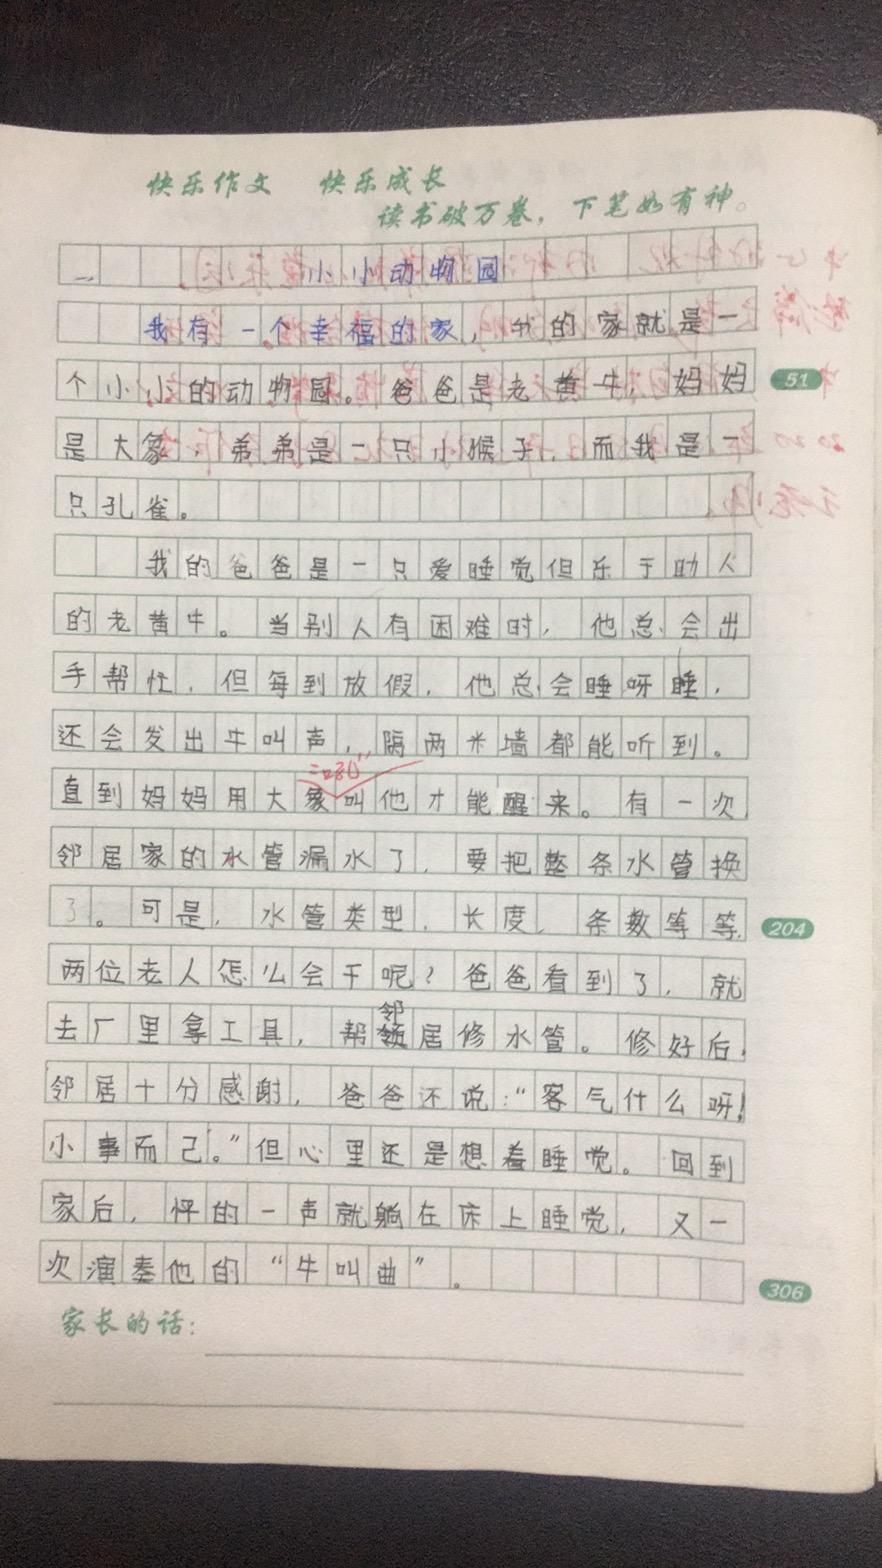 快乐作文 快乐成长
读书破万卷，下笔如有神。
小小动物园
我有一个幸福的家，我的家就是一
个小小的动物园。爸爸是老黄牛，妈妈
是大象，弟弟是一只小猴子，而我是一
只孔雀。
我的爸爸是一只爱睡觉但乐于助人
的老黄牛。当别人有困难时，他总会出
手帮忙，但每到放假，他总会睡呀睡，
还会发出牛叫声，隔两米墙都能听到。
直到妈妈用大象叫他才能醒来。有一次
邻居家的水管漏水了，要把整条水管换
了。可是，水管类型，长度，条数等等，
51
204
两位老人怎么会干呢？爸爸看到了，就
去厂里拿工具，帮邻居修水管。修好后，
邻居十分感谢，爸爸还说：“客气什么呀！
小事而己。”但心里还是想着睡觉。回到
家后，怦的一声就躺在床上睡觉，又一
次演奏他的“牛叫曲”。
306
家长的话：